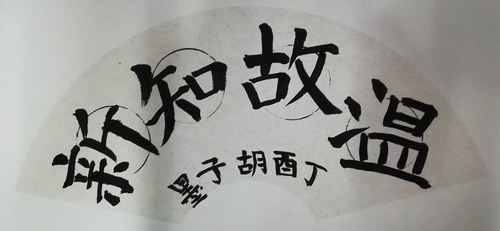 温故知新
丁酉胡子墨